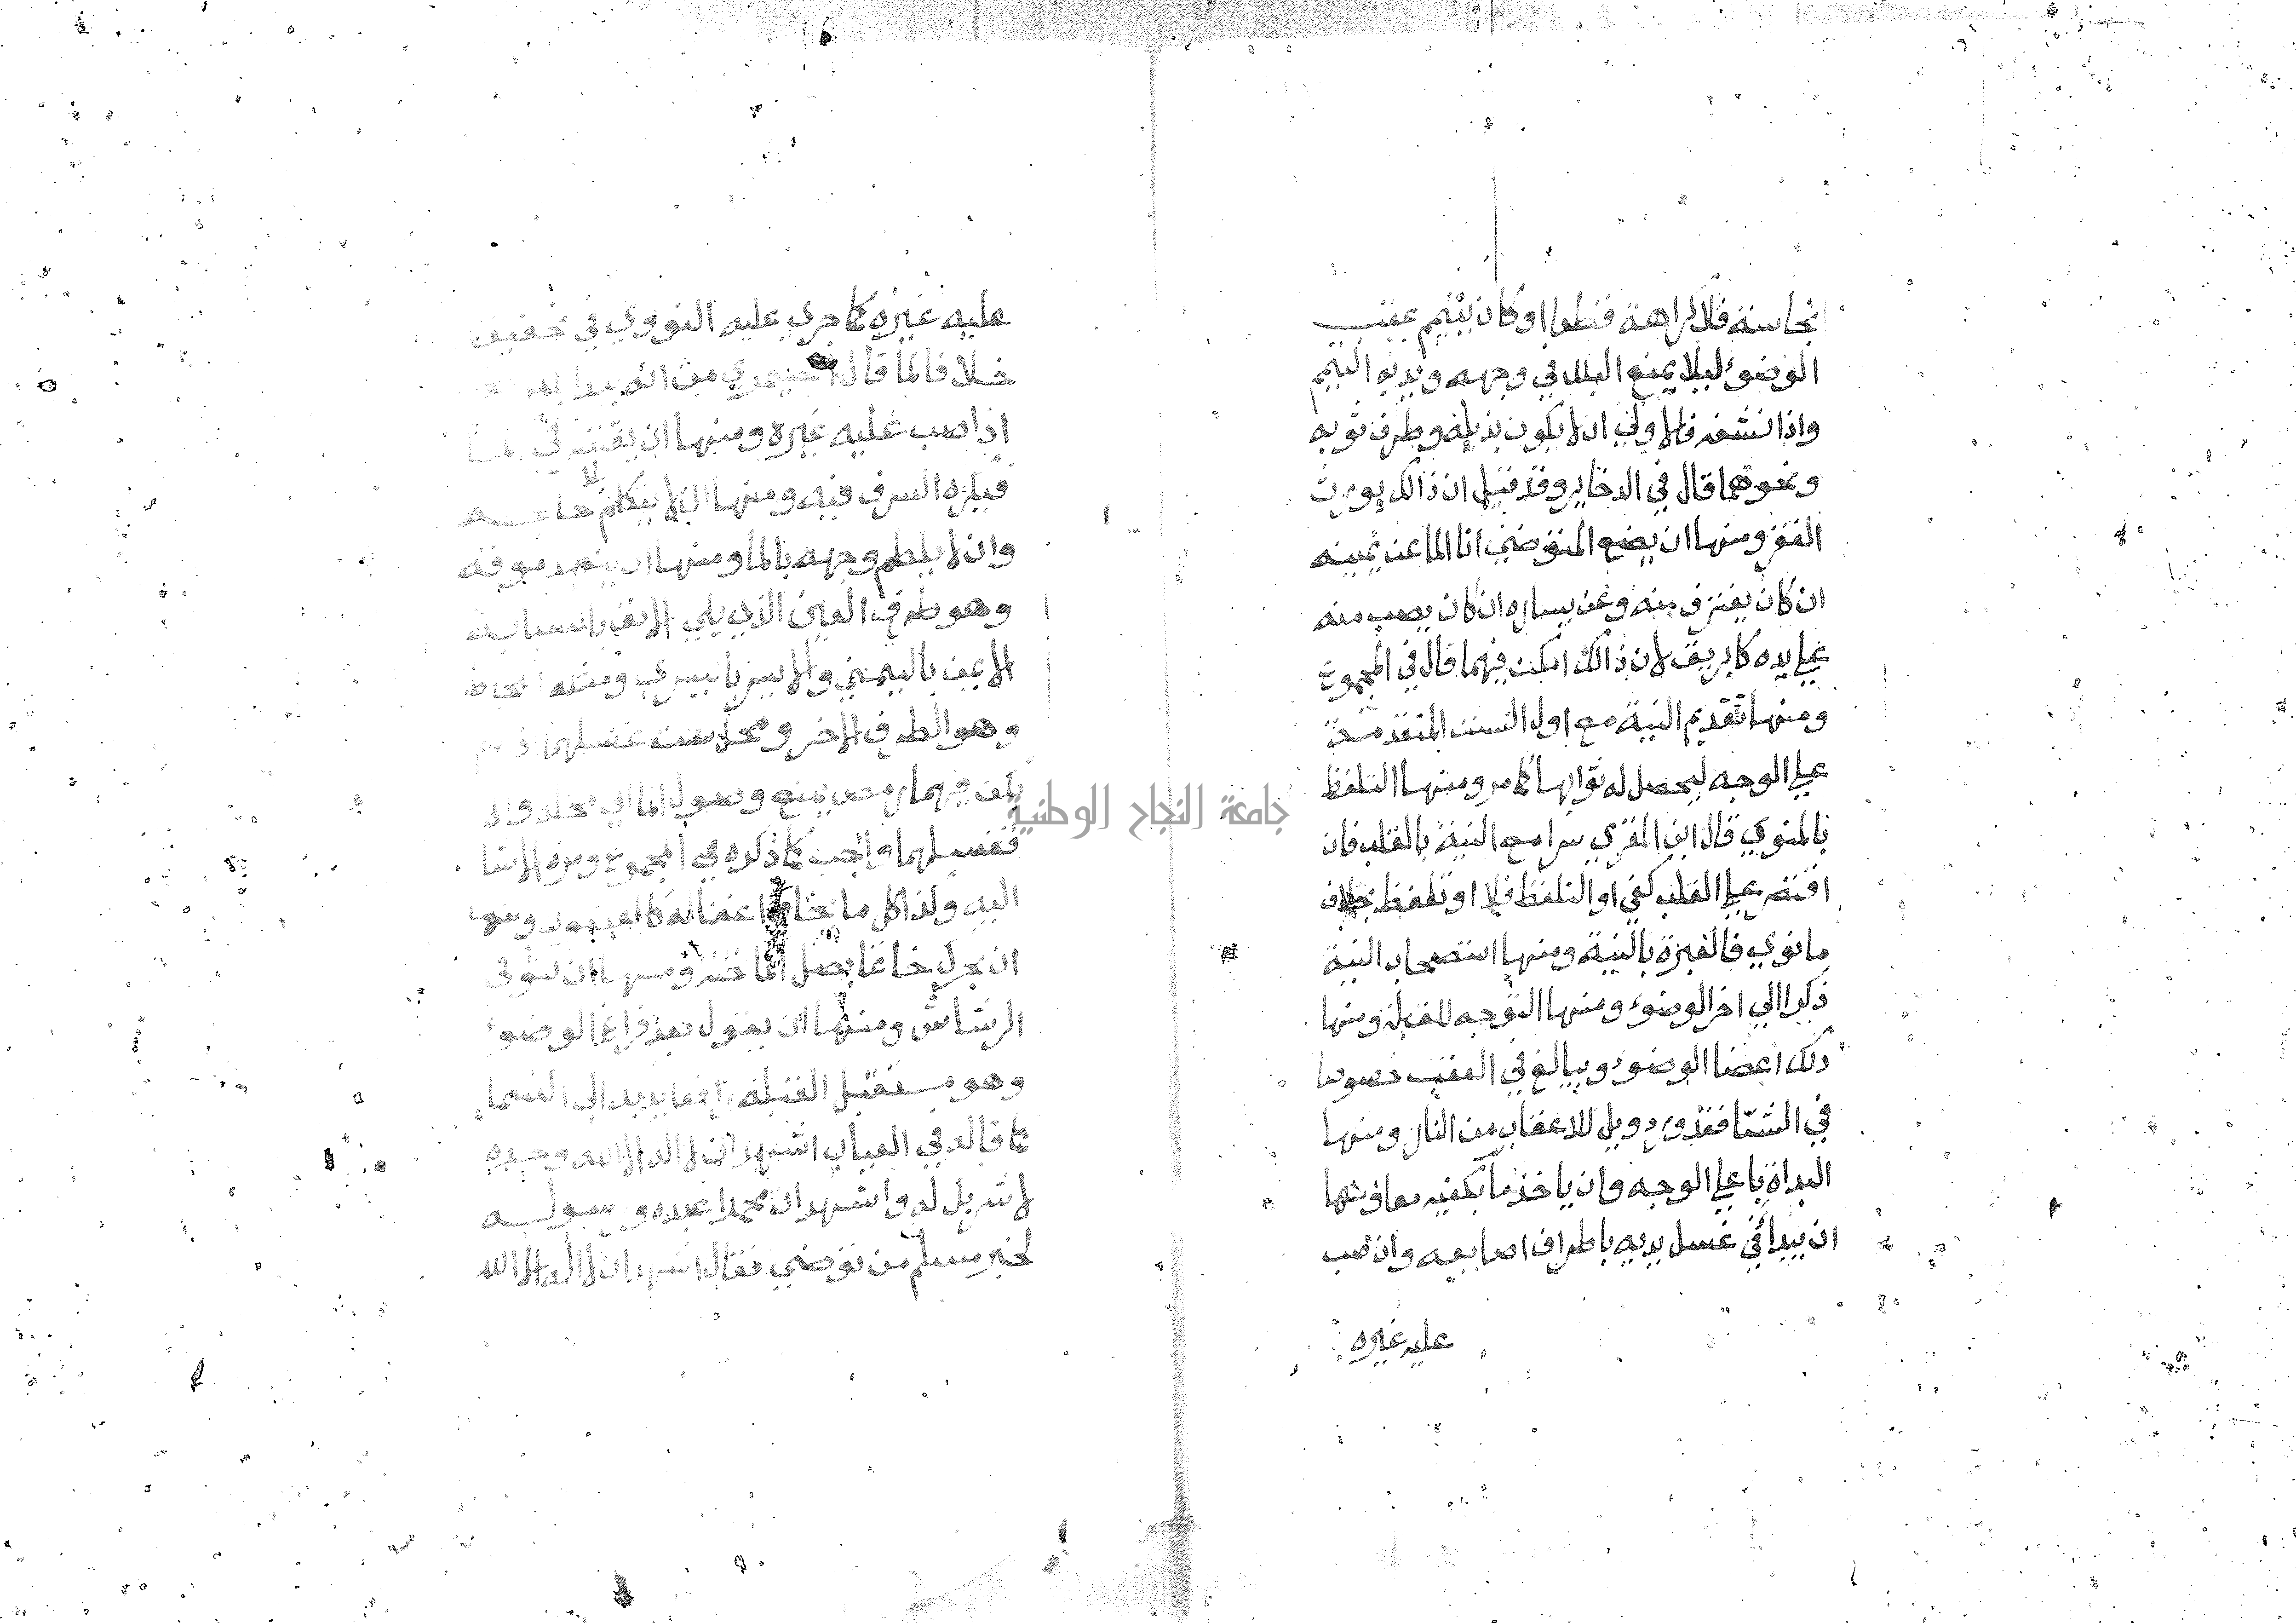 نجاسة فلا كراهة قطعا او كان يتيمم عقب
الوضوء ليلا يمنع البلل في وجهه ويديه التيمم
واذا نشف فالاولي ان لا يكون بذيله وطرف ثوبه
ونحوهما قال في الدخاير وقد قيل ان ذالك يورث
الفقر ومنها ان يضع المتوضي انا الما عن يمينه
ان كان يغترف منه وعن يساره ان كان يصب منه
علي يده كابريق لان ذالك امكن فيهما قال في المجموع
ومنها تقديم النية مع اول السنن المتقدمة
علي الوجه ليحصل له ثوابها كما مر ومنها التلفظ
بالمنوي قال ابن المقري سرا مع النية بالقلب فان
اقتصر علي القلب كفي او التلفظ فلا او تلفظ بخلاف
ما نوي فالعبرة بالنية ومنها استصحاب النية
ذكرا الي اخر الوضوء ومنها التوجه للقبلة ومنها
دلك اعضا الوضوء ويبالغ في العقب خصوصا
في الشتا فقد ورد ويل للاعقاب من النار ومنها
البداة باعلي الوجه وان ياخذ ما بكفيه معا ومنها
ان يبدا في غسل يديه باطراف اصابعه وان صب
عليه غيره
عليه غيره كما جري عليه النووي في تحقيقه
خلافا لما قال الصيمري من انه يبدا
اذا صب عليه غيره ومنها ان يقتصد في الما
فيكره السرف فيه ومنها ان لا يتكلم بلا حاجة
وان لا يلطم وجهه بالما ومنها ان يتعهد موقه
وهو طرف العين الذي يلي الانف بالسبابة
الايمن باليمني والايسر باليسري ومثله اللحاظ
وهو الطرف الاخر ومحل سن غسلهما اذا لم
يكن فيهما رمص يمنع وصول الما الي محله والا
فغسلهما واجب كما ذكره في المجموع ومرة الاشا
اليه وكذا كل ما يخاف اغفاله كالغضون ومنها
ان يحرك خاتما يصل الما تحته ومنها ان يتوقي
الرشاش ومنها ان يقول بعد فراغ الوضوء
وهو مستقبل القبلة رافعا يديه الي السما
كما قاله في العباب اشهد ان لا اله الا الله وحده
لا شريك له واشهد ان محمدا عبده ورسوله
لخبر مسلم من توضي فقال اشهد ان لا اله الا الله
جامعة النجاح الوطنية